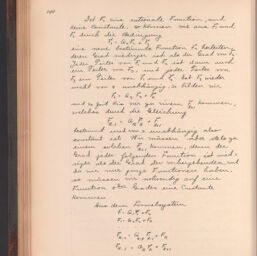 Ist F₁ eine rationale Function, und
keine Constante, so können wir aus F und
F₁ durch die Bedingung
F = Q₁F₁ + F₂
eine neue bestimmte Function F₂ herleiten,
deren Grad niedriger ist als der Grad von F₁.
Jeder Theiler von F und F₁ ist dann auch
ein Theiler von F₂, und jeder Theiler von
F₂ ein Theiler von F und F₁. Ist F₂ wieder
nicht von x unabhängig, so bilden wir
F₁ = Q₂F₂ + F₃
und so fort bis wir zu einem kommen,
welches durch die Gleichung
bestimmt und von x unabhängig also
constant ist. Wir müssen aber
einem solchen kommen, denn der
Grad jeder folgenden Function ist
als der Grad der vorhergehenden, und
da wir nur ganze Functionen haben,
so müssen wir nothwendig auf eine
Function 0ten Grades eine Constante
kommen.
Aus dem Formelsystem
F = Q₁F₁ + F₂
F₁ = Q₂F₂ + F₃